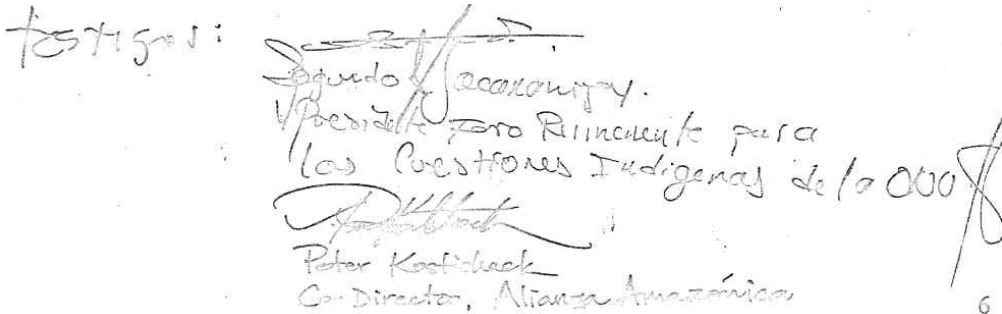 testigos:
Segundo
VPresidente Foro para
las Cuestiones Indigenas de la ONU
Peter Kostishack
Co-Director, Alianza Amazónica
6